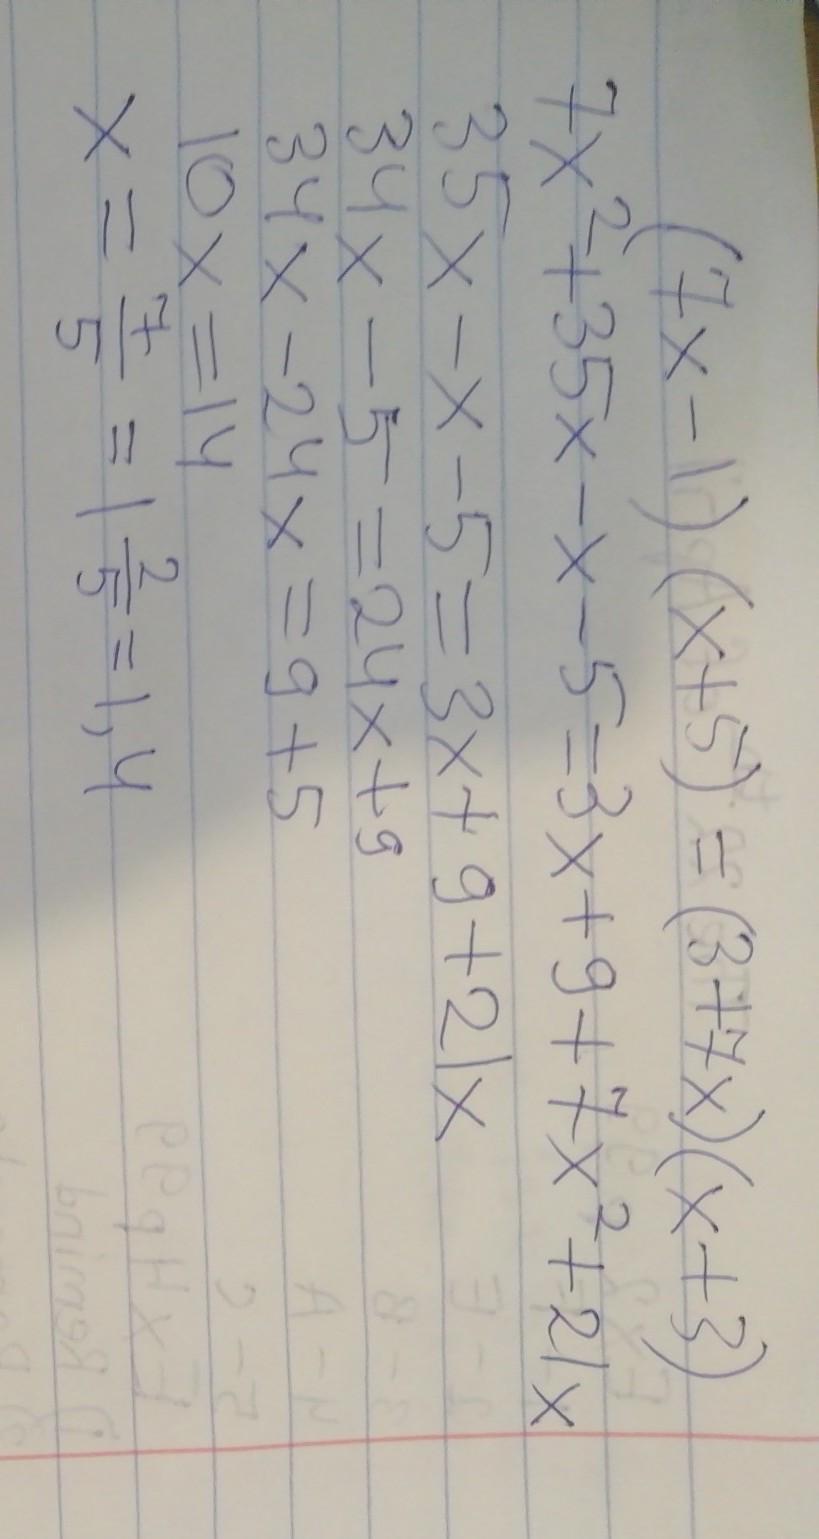 (7x-1)(x+5)=(3+7x)(x+3)
7x²+35x-x-5=3x+9+7x²+21x
35x-x-5=3x+9+21x
34x-5=24x+9
34x-24x=9+5
10x=14
x=7/5=1 2/5=1,4